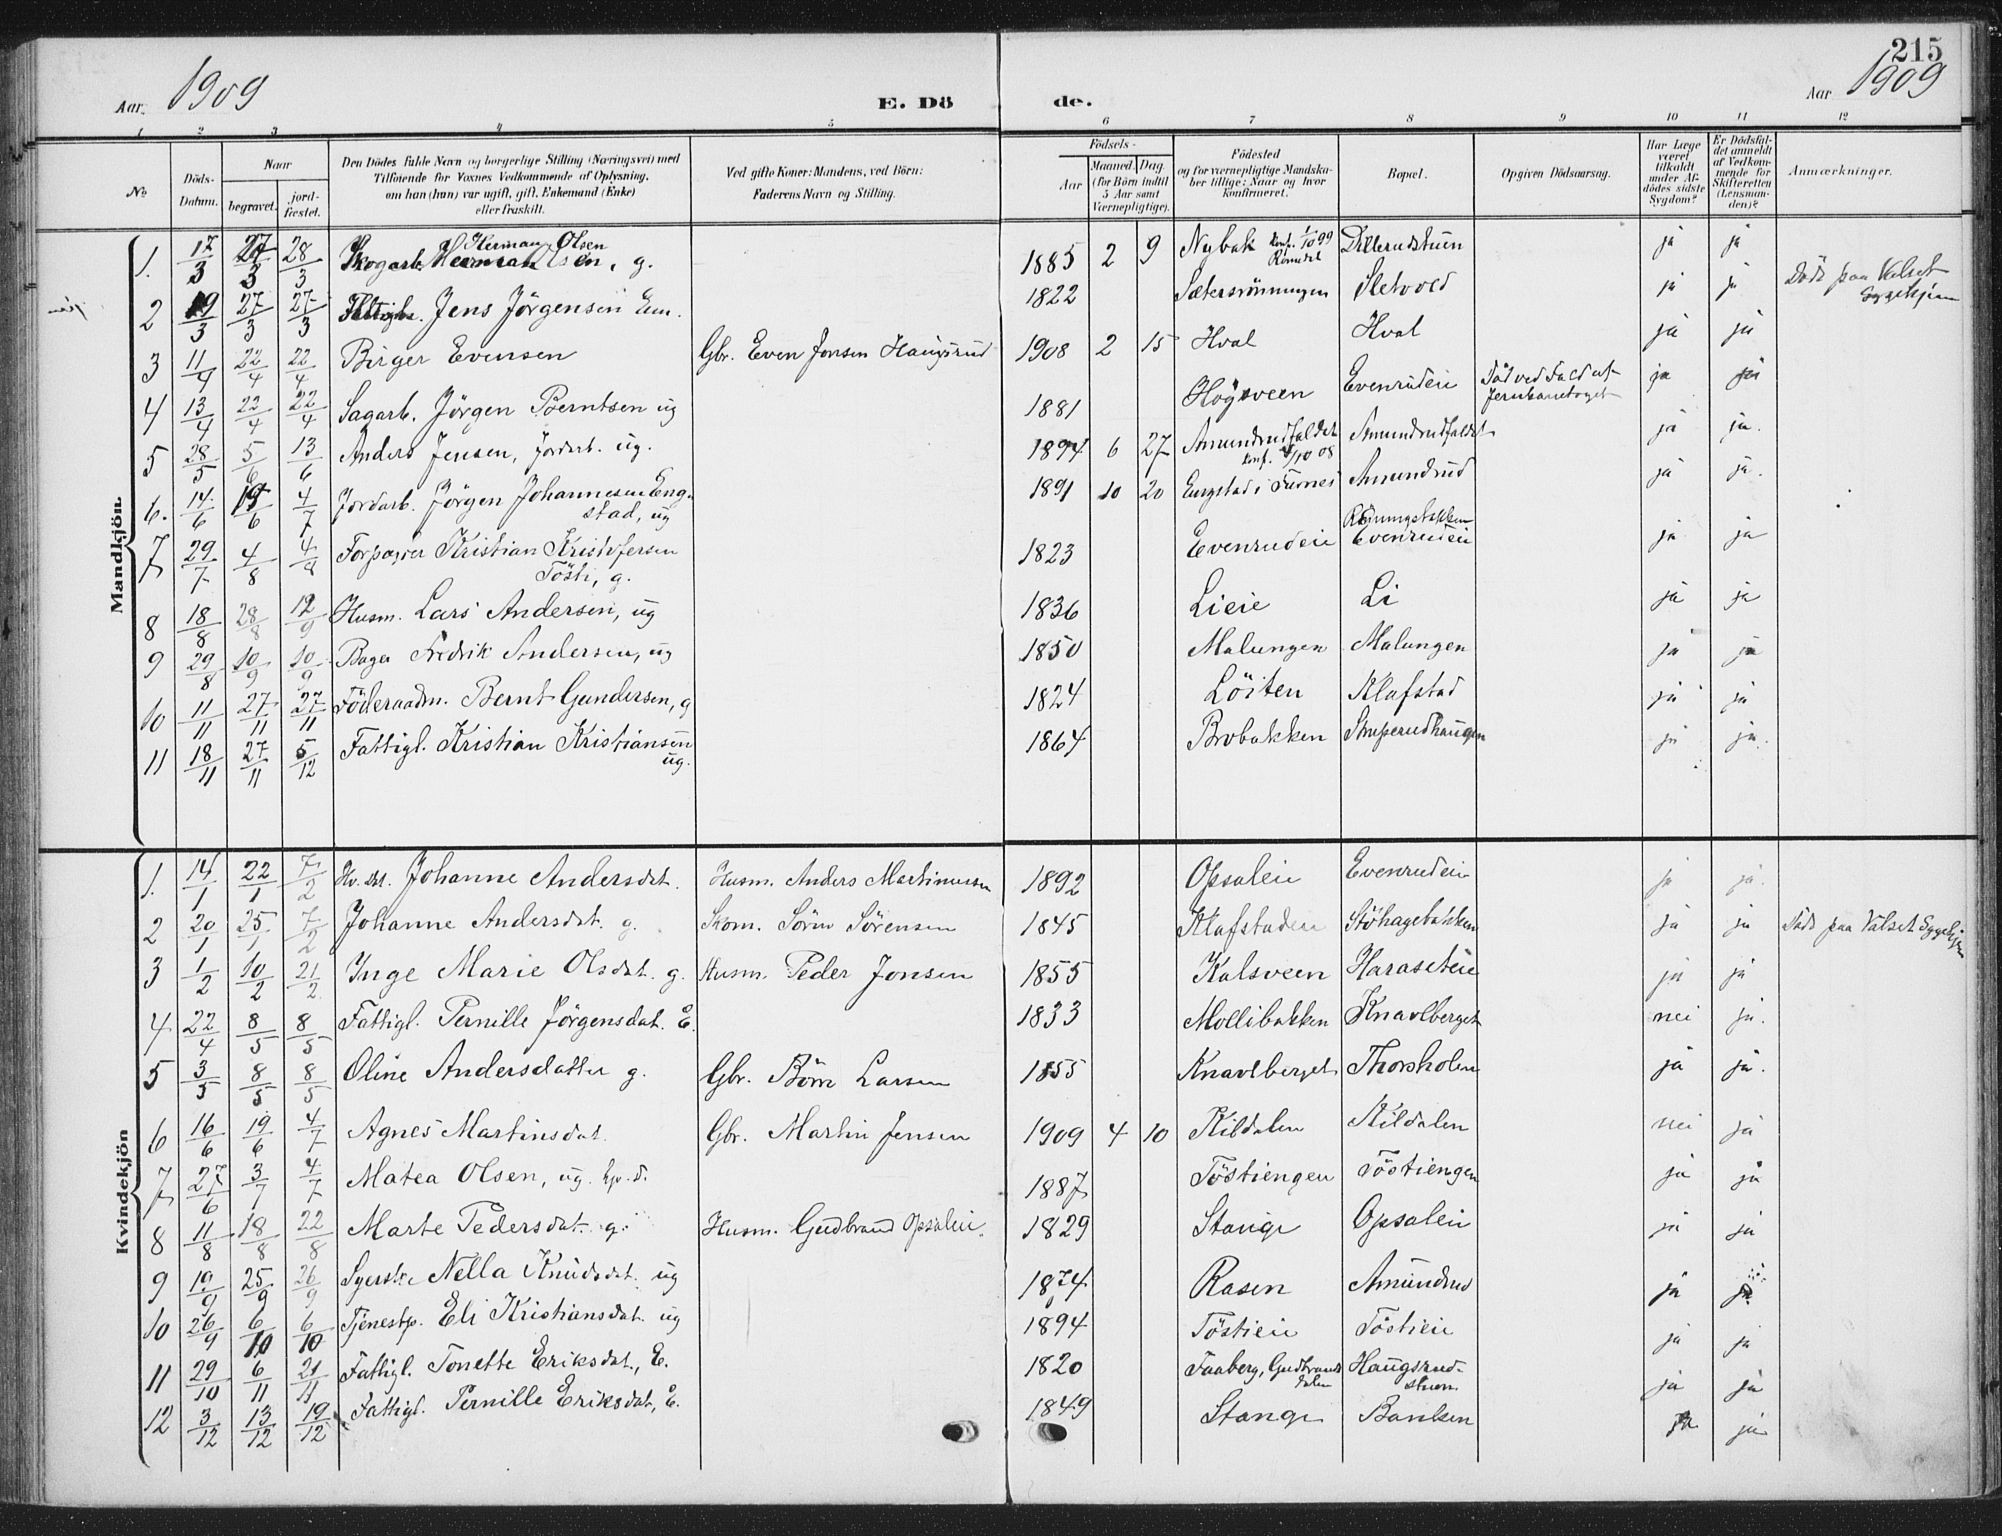 215
Aar. 1909 E. Dö de. Aar 1909
1 2 3 4 5 6 7 8 9 10 11 12
No
Döds-Datum.
Naar
begravet. jord-fæstet.
Den Dödes fulde Navn og borgerlige Stilling (Næringsvei) med
Tilföiende for Voxnes Vedkommende af Oplysning,
om han (hun) var ugift, gift, Enkemand (Enke)
eller fraskilt.
Ved gifte Koner: Mandens, ved Börn:
Faderens Navn og Stilling.
Födsels-
Aar Maaned. Dag.
(for Börn indtil
5 Aar samt
Værnepligtige).
Födested
og for værnepligtige Mandska-
ber tillige: Naar og hvor
konfirmeret.
Bopæl.
Opgiven Dödsaarsag.
Har Læge
været
tilkaldt
under Af-
dödes sidste
Sygdom?
Er Dödsfal-
det anmeldt
af Vedkom-
mende for
Skifteretten
(Lensman-
den)?
Anmærkninger.
Mandkjön.
1. 17/3 27/3 28/3 Skogarb. Herman Olsen, g. 1885 2 9 Nybak konf. 1/10 99 Romedal Dillerudstuen ja ja
2 19/3 27/3 27/3 Jens Jörgensen Em. 1822 Sætersrönningen Sletvold ja ja Död paa Valset Sygehjem
3 11/4 22/4 22/4 Birger Evensen Gbr. Even Jonsen Haugsrud 1908 2 15 Hval Hval ja ja
4 13/4 22/4 22/4 Sagarb. Jörgen Berntsen ug 1881 Högsveen Evenrudeie Död ved Fald ut Jernbanetoget ja ja
5 28/5 5/6 13/6 Anders Jensen, Jordarb. ug. 1894 6 27 Amundrudfaldet konf. 4/10 08 Amundrudfaldet ja ja.
6. 14/6 19/6 4/7 Jordarb. Jörgen Johannesen Engstad, ug 1891 10 20 Engstad i Furnes Amundrud ja ja.
7 29/7 4/8 4/8 Forpagter Kristian Kristofersen Tösti, g. 1823 Evenrudeie Evenrudeie ja ja
8 18/8 28/8 12/9 Husm. Lars Andersen, ug 1836 Lieie Li ja ja
9 29/8 10/9 10/9 Bager Fredrik Andersen, ug 1850 Malungen Malungen ja ja
10 11/11 27/11 27/11 Föderaadm. Bernt Gundersen, g 1824 Löiten Klafstad ja ja
11 18/11 27/11 5/12 Fattigl. Kristian Kristiansen ug. 1864 Brobakken Struperudhaugen ja ja.
Kvindekjön
1. 14/1 22/1 7/2 Hv. dat. Johanne Andersdat. Husm. Anders Martinusen 1892 Opsaleie Evenrudeie ja ja.
2 20/1 25/1 7/2 Johanne Andersdat. g. Skom. Sörin Sörensen 1845 Klafstadeie Stöhagebakken ja ja Död paa Valset Sygehjem
3 1/2 10/2 21/2 Inge Marie Olsdat. g. Husm. Peder Jonsen 1855 Kalsveen Haraseteie ja ja
4 22/4 8/5 8/5 Fattigl. Pernille Jörgensdat. E. 1833 Mollibakken Knavlberget nei ja.
5 3/5 8/5 8/5 Oline Andersdatter g. Gbr. Börn Larsen 1855 Knavlberget Thorsholen ja ja.
6 16/6 19/6 4/7 Agnes Martinsdat. Gbr. Martin Jensen 1909 4 10 Kildalen Kildalen nei ja
7 27/6 3/7 4/7 Matea Olsen, ug. hp. d. 1887 Töstiengen Töstiengen ja ja
8 11/8 18/8 22/8 Marte Pedersdat. g. Husm. Gudbrand Opsaleie. 1829 Stange Opsaleie ja ja
9 19/9 25/9 26/9 Syerske Nella Knudsdat. ug 1874 Rasen Amundrud ja ja
10 26/9 6/10 6/10 Tjenestp. Eli Kristiansdat. ug 1894 Töstieie Töstieie ja ja
11 29/10 6/11 21/11 Fattigl. Tonette Eriksdat., E. 1820 Faaberg, Gudbrandsdalen Haugsrudstuen ja ja
12 3/12 13/12 19/12 Fattigl. Pernille Eriksdat, E. 1849 Stange Banksen ja ja